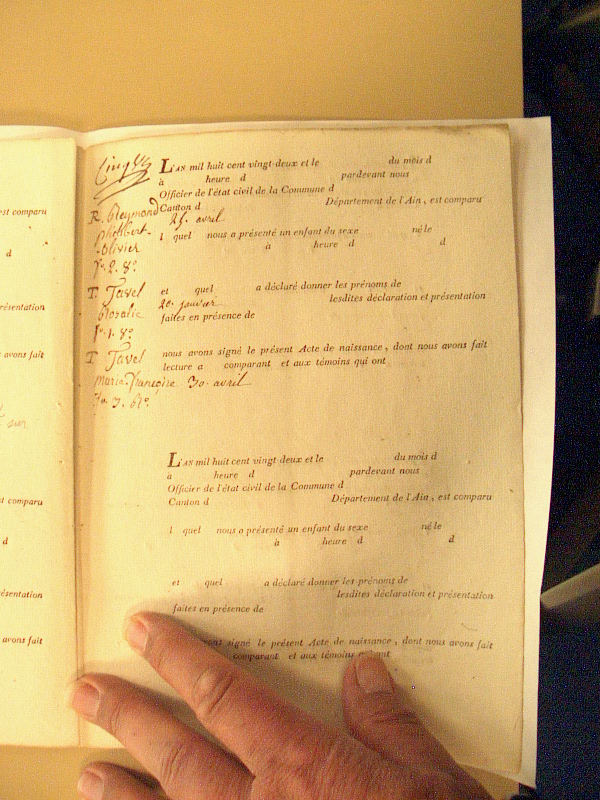 est comparu
d
résentation
avons fait
sur
est comparu
d
ésentation
avons fait
L'AN mil huit cent vingt-deux et le du mois d
à heure d pardevant nous
Officier de l'état civil de la Commune d
Canton d Département de l'Ain, est comparu
R. Reymond 25. avril
philibert
olivier
l quel nous a présenté un enfant du sexe né le
à heure d d
f.o 2. 8.o
T. Javel et quel a déclaré donner les prénoms de
Rosalie 20. janvier lesdites déclaration et présentation
f.o 1. 8.o faites en présence de
T Javel nous avons signé le présent Acte de naissance, dont nous avons fait
lecture a comparant et aux témoins qui ont
marie-françoise 30. avril
L'AN mil huit cent vingt-deux et le du mois d
à heure d pardevant nous
Officier de l'état civil de la Commune d
Canton d Département de l'Ain, est comparu
l quel nous a présenté un enfant du sexe né le
à heure d d
et quel a déclaré donner les prénoms de
lesdites déclaration et présentation
faites en présence de
signé le présent Acte de naissance, dont nous avons fait
comparant et aux témoins